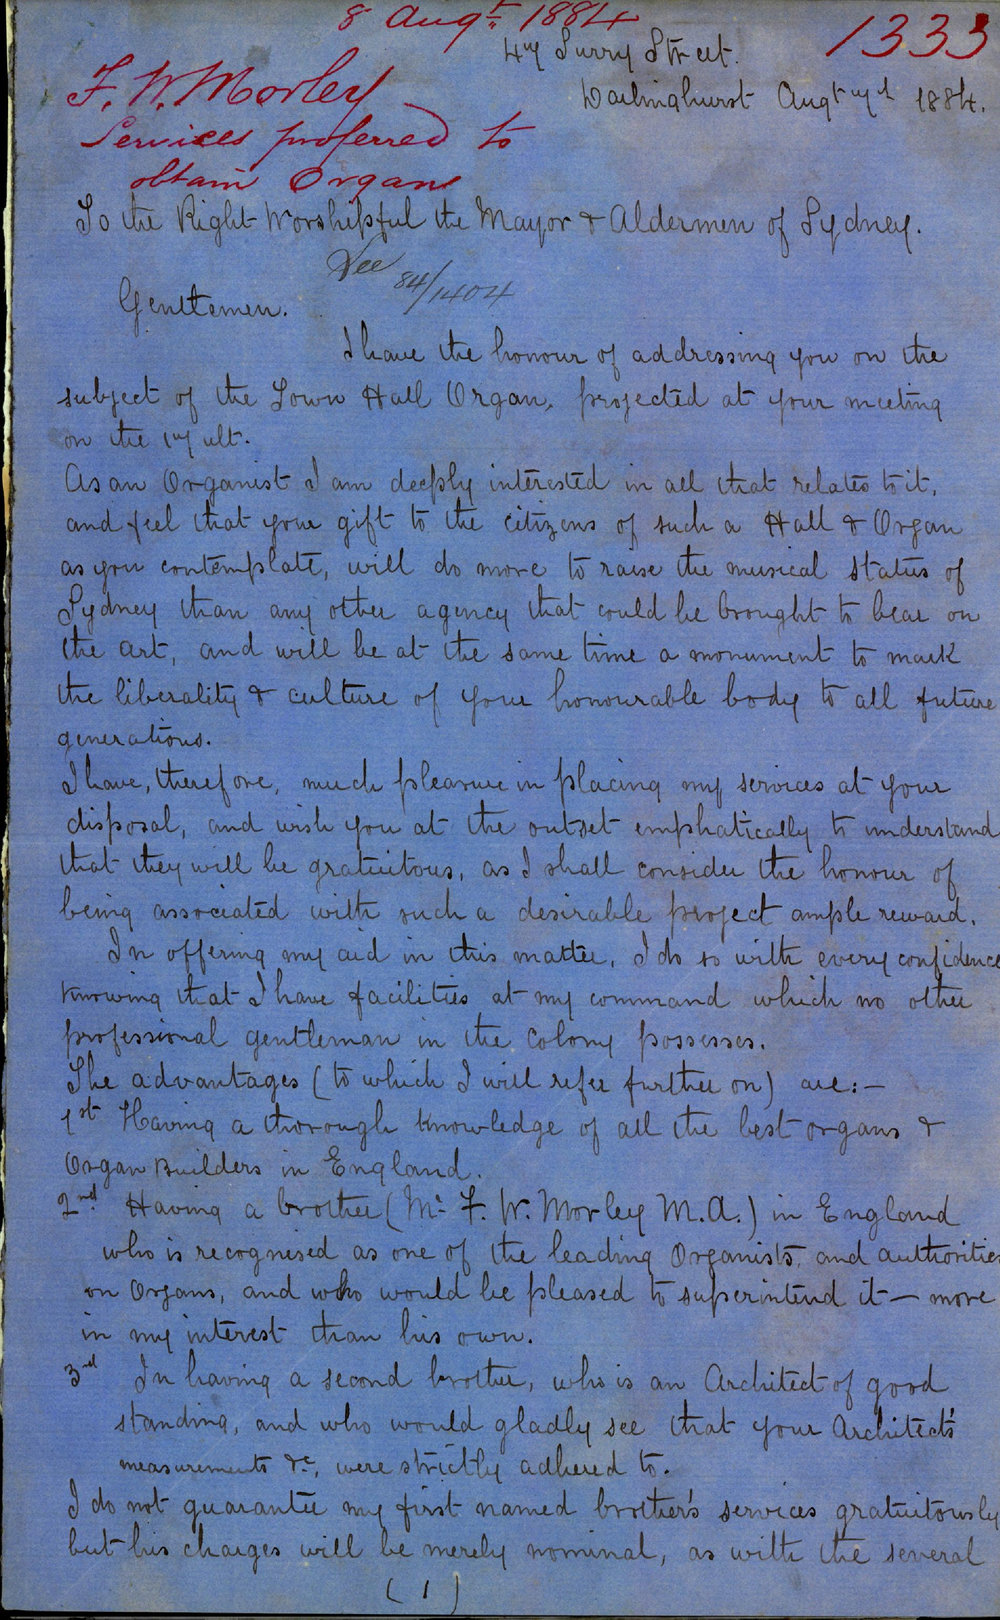 8 Augt 1884
1333
47 Surry Street.
F. W. Morley
Darlinghurst Augt 7th 1884.
Services proferred to
obtain Organ
To the Right Worshipful the Mayor & Aldermen of Sydney.
See 84/1404
Gentlemen.
I have the honour of addressing you on the
subject of the Town Hall Organ, projected at your meeting
on the 17 ult.
As an Organist I am deeply interested in all that relates to it,
and feel that your gift to the citizens of such a Hall & Organ
as you contemplate, will do more to raise the musical status of
Sydney than any other agency that could be brought to bear on
the art, and will be at the same time a monument to mark
the liberality & culture of your honourable body to all future
generations.
I have, therefore, much pleasure in placing my services at your
disposal, and wish you at the outset emphatically to understand
that they will be gratuitous, as I shall consider the honour of
being associated with such a desirable project ample reward.
In offering my aid in this matter, I do so with every confidence
knowing that I have facilities at my command which no other
professional gentleman in the Colony possesses.
The advantages (to which I will refer further on) are:—
1st Having a thorough knowledge of all the best organs &
Organ Builders in England.
2nd Having a brother (Mr F. W. Morley M.A.) in England
who is recognised as one of the leading Organists, and authorities
on Organs, and who would be pleased to superintend it — more
in my interest than his own.
3rd In having a second brother, who is an Architect of good
standing, and who would gladly see that your Architect's
measurements &c, were strictly adhered to.
I do not guarantee my first named brother's services gratuitously
but his charges will be merely nominal, as with the several
(1)